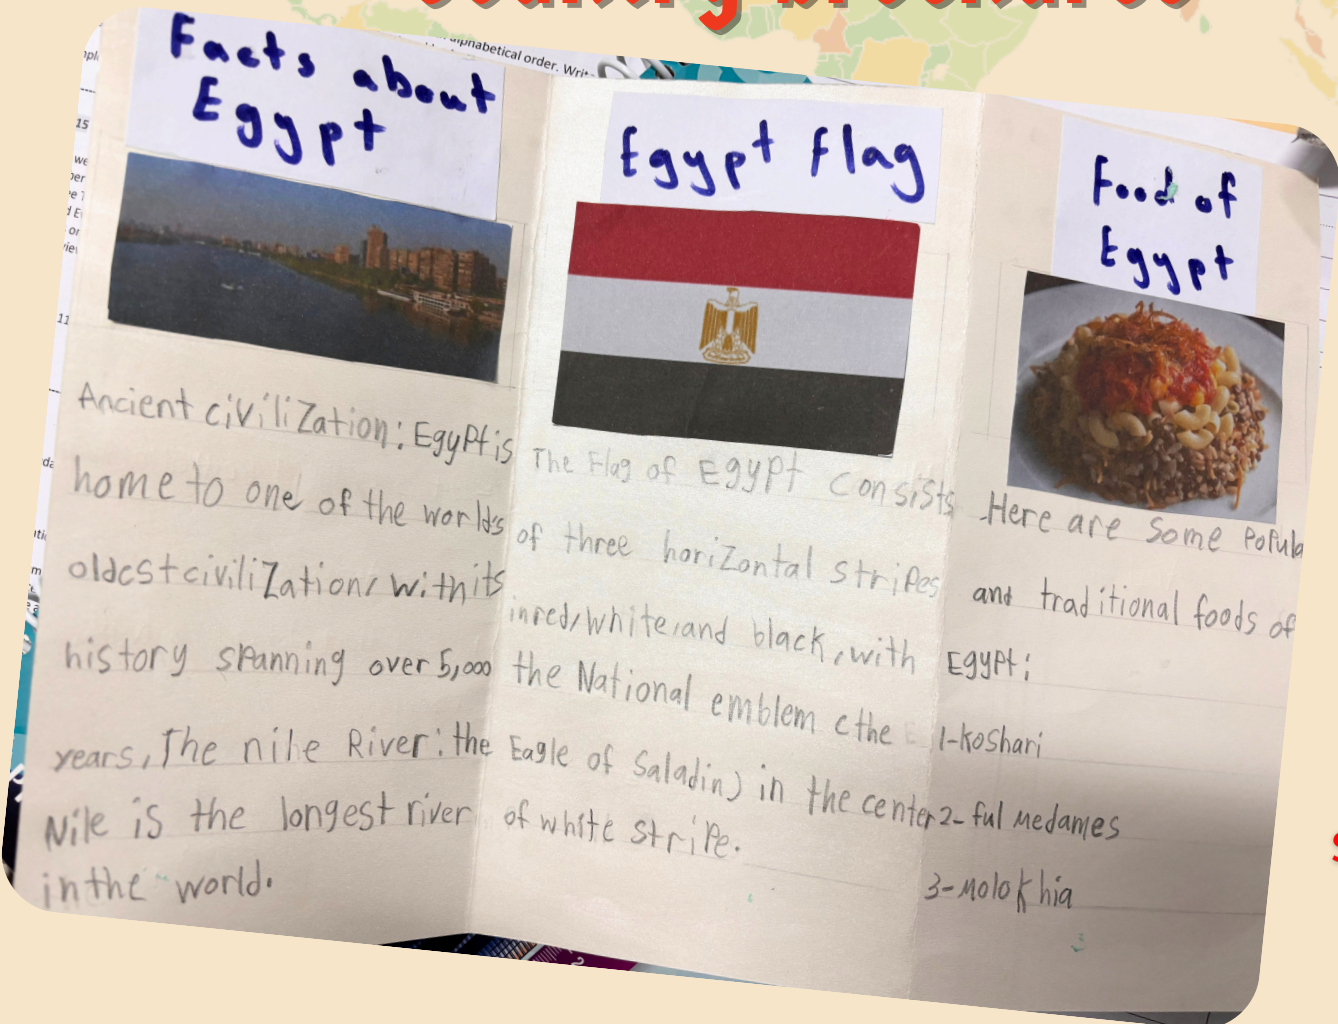 country brochures
alphabetical order. Write
15
we
11
Facts about
Egypt
Ancient civiliZation: Egypt is
home to one of the world's
oldest civiliZation, with its
history spanning over 5,000
years, The nile River: the
Nile is the longest river
in the world.
Egypt Flag
The Flag of EgyPt Consists
of three horiZontal striPes
in red, white, and black, with
the National emblem (the
Eagle of Saladin) in the center
of white striPe.
Food of
Egypt
Here are some PoPula
and traditional foods of
EgyPt:
1-Koshari
2-ful Medames
3-Molokhia